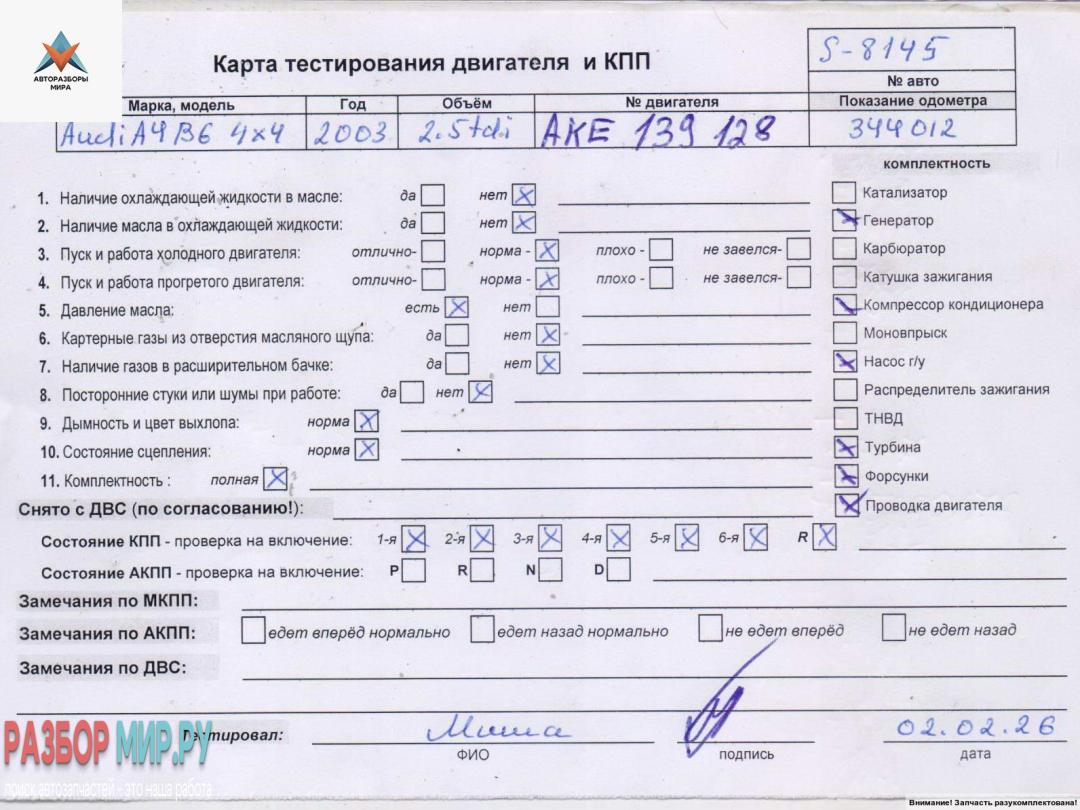 АВТОРАЗБОРЫ
МИРА
Карта тестирования двигателя и КПП
S-8145
№ авто
Марка, модель Год Объём № двигателя Показание одометра
Audi A4 B6 4x4 2003 2.5tdi AKE 139 128 344012
комплектность
1. Наличие охлаждающей жидкости в масле: да нет
Катализатор
2. Наличие масла в охлаждающей жидкости: да нет
Генератор
3. Пуск и работа холодного двигателя: отлично- норма - плохо - не завелся-
Карбюратор
4. Пуск и работа прогретого двигателя: отлично- норма - плохо - не завелся-
Катушка зажигания
5. Давление масла: есть нет
Компрессор кондиционера
6. Картерные газы из отверстия масляного щупа: да нет
Моновпрыск
7. Наличие газов в расширительном бачке: да нет
Насос г/у
8. Посторонние стуки или шумы при работе: да нет
Распределитель зажигания
9. Дымность и цвет выхлопа: норма
ТНВД
10. Состояние сцепления: норма
Турбина
11. Комплектность : полная
Форсунки
Снято с ДВС (по согласованию!):
Проводка двигателя
Состояние КПП - проверка на включение: 1-я 2-я 3-я 4-я 5-я 6-я R
Состояние АКПП - проверка на включение: P R N D
Замечания по МКПП:
Замечания по АКПП: едет вперёд нормально едет назад нормально не едет вперёд не едет назад
Замечания по ДВС:
РАЗБОР МИР.РУ
поиск автозапчастей - это наша работа
Тестировал: Миша 02.02.26
ФИО подпись дата
Внимание! Запчасть разукомплектована!